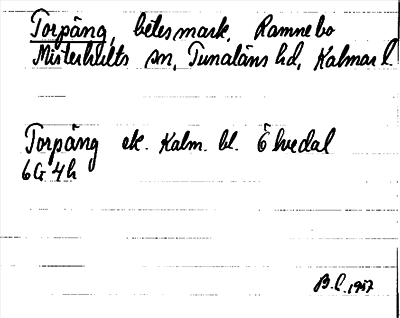 Torpäng, betesmark, Ramnebo
Misterhults sn, Tunaläns hd, Kalmar l.
Torpäng ek. Kalm. bl. Elvedal
6G 4h
B.C. 1957